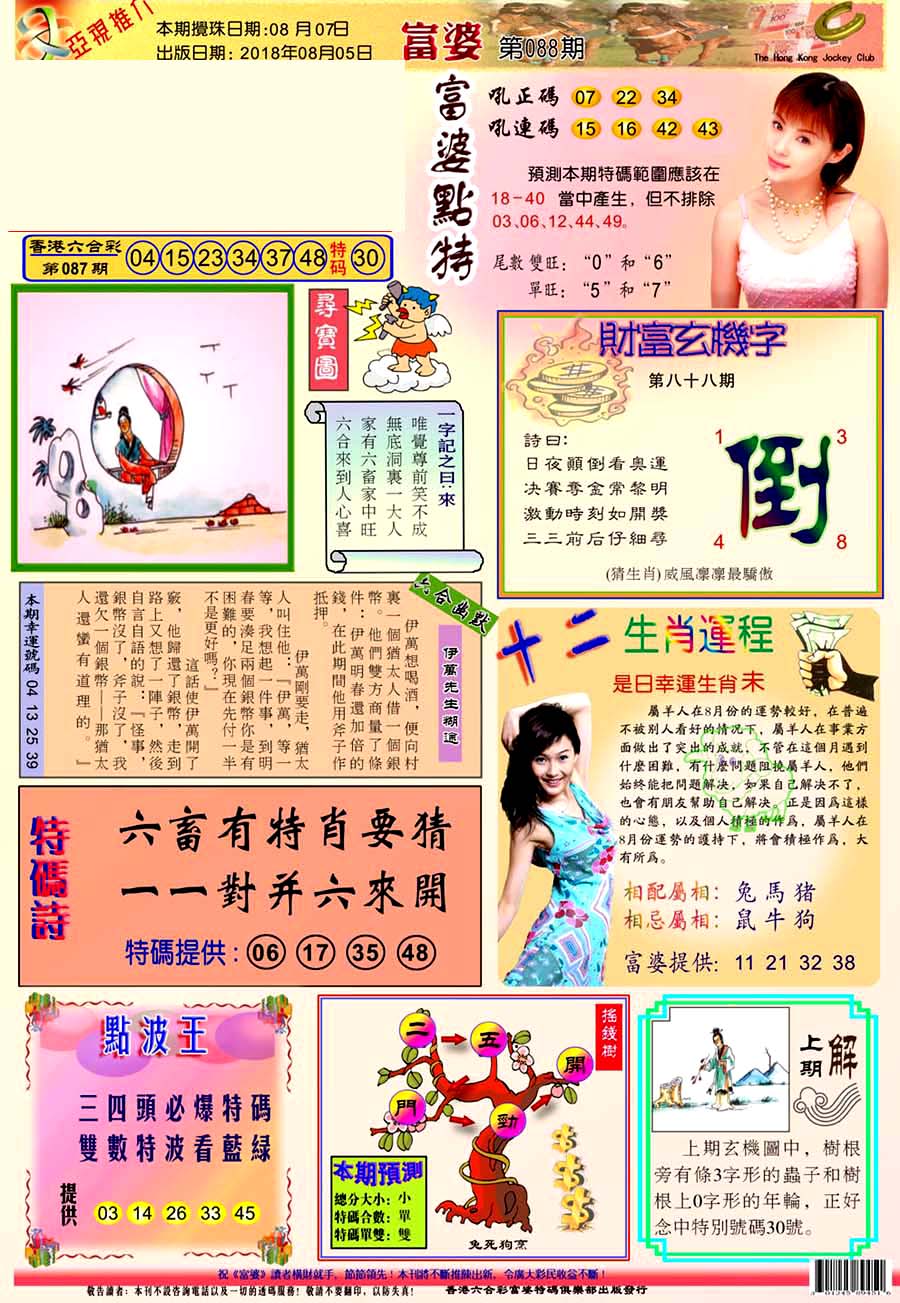 亞視推介
本期攪珠日期:08月07日
出版日期: 2018年08月05日
富婆 第088期
The Hong Kong Jockey Club
富婆點特
吼正碼 07 22 34
吼連碼 15 16 42 43
預測本期特碼範圍應該在
18-40 當中產生，但不排除
03、06、12、44、49。
尾數雙旺：“0”和“6”
單旺：“5”和“7”
香港六合彩
第087期
04 15 23 34 37 48 特码 30
尋寶圖
一字記之曰:來
唯覺尊前笑不成
無底洞裏一大人
家有六畜家中旺
六合來到人心喜
財富玄機字
第八十八期
詩曰:
日夜顚倒看奧運
决賽奪金常黎明
激動時刻如開獎
三三前后仔細尋
1 3
倒
4 8
(猜生肖)威風凛凛最驕傲
六合幽默
伊萬先生糊塗
伊萬想喝酒，便向村
裏一個猶太人借一個銀
幣。他們雙方商量了條
件：伊萬明春還加倍的
錢，在此期間他用斧子作
抵押。
伊萬剛要走，猶太
人叫住他：『伊萬，等一
等，我想起一件事，到明
春要湊足兩個銀幣你是有
困難的，你現在先付一半
不是更好嗎？』
這話使伊萬開了
竅，他歸還了銀幣，走到
路上又想了一陣子，然後
自言自語的說：『怪事，
銀幣沒了，斧子沒了，我
還欠一個銀幣——那猶太
人還蠻有道理的。』
本期幸運號碼 04 13 25 39
十二生肖運程
是日幸運生肖未
屬羊人在8月份的運勢較好，在普遍
不被別人看好的情况下，屬羊人在事業方
面做出了突出的成就，不管在這個月遇到
什麽困難，有什麽問題阻撓屬羊人，他們
始終能把問題解决，如果自己解决不了，
也會有朋友幫助自己解决。正是因爲這樣
的心態，以及個人積極的作爲，屬羊人在
8月份運勢的護持下，將會積極作爲，大
有所爲。
相配屬相：兔馬猪
相忌屬相：鼠牛狗
富婆提供：11 21 32 38
特碼詩
六畜有特肖要猜
一一對并六來開
特碼提供：06 17 35 48
點波王
三四頭必爆特碼
雙數特波看藍綠
提供
03 14 26 33 45
搖錢樹
二 五 開
門 勁
本期預測
總分大小：小
特碼合數：單
特碼單雙：雙
兔死狗烹
上期解
上期玄機圖中，樹根
旁有條3字形的蟲子和樹
根上0字形的年輪，正好
念中特別號碼30號。
祝《富婆》讀者横財就手，節節領先！本刊將不斷推陳出新，令廣大彩民收益不斷！
敬告讀者：本刊不設咨詢電話以及一切的透碼服務！敬請不要翻印，以防失真！ 香港六合彩富婆特碼俱樂部出版發行